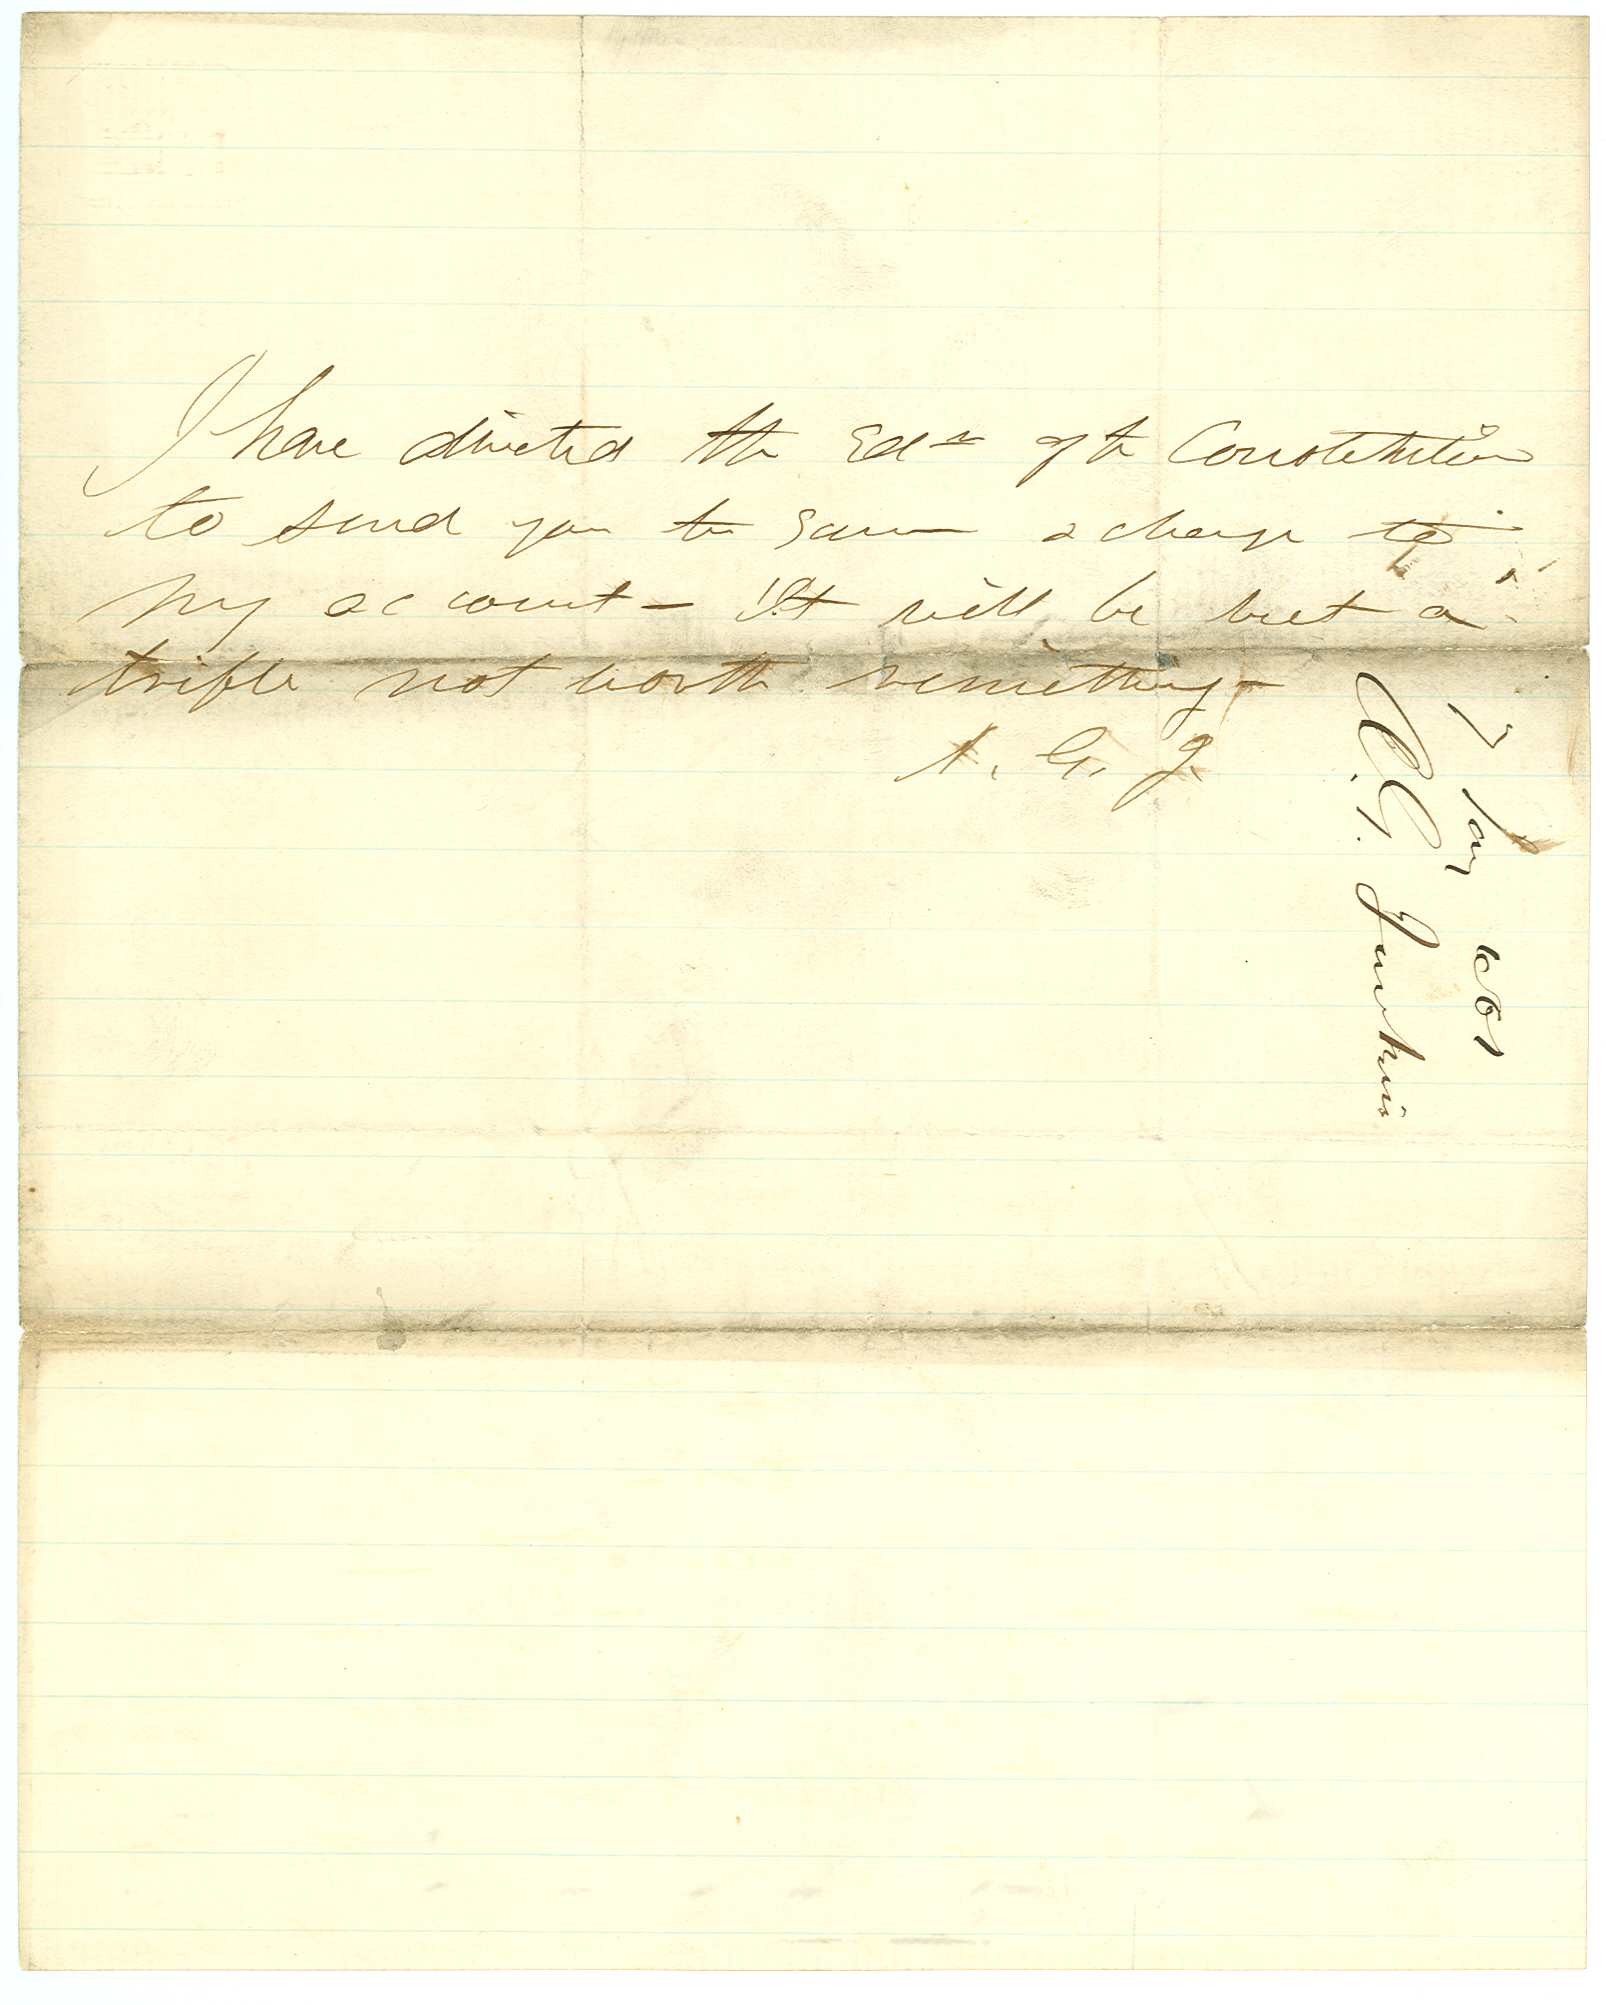 I have directed the Edr of the Constitution
to send you the same & charge to
my account - It will be but a
trifle not worth remitting -
A. G. J.
A. G. Jenkins
7 Jany 1861